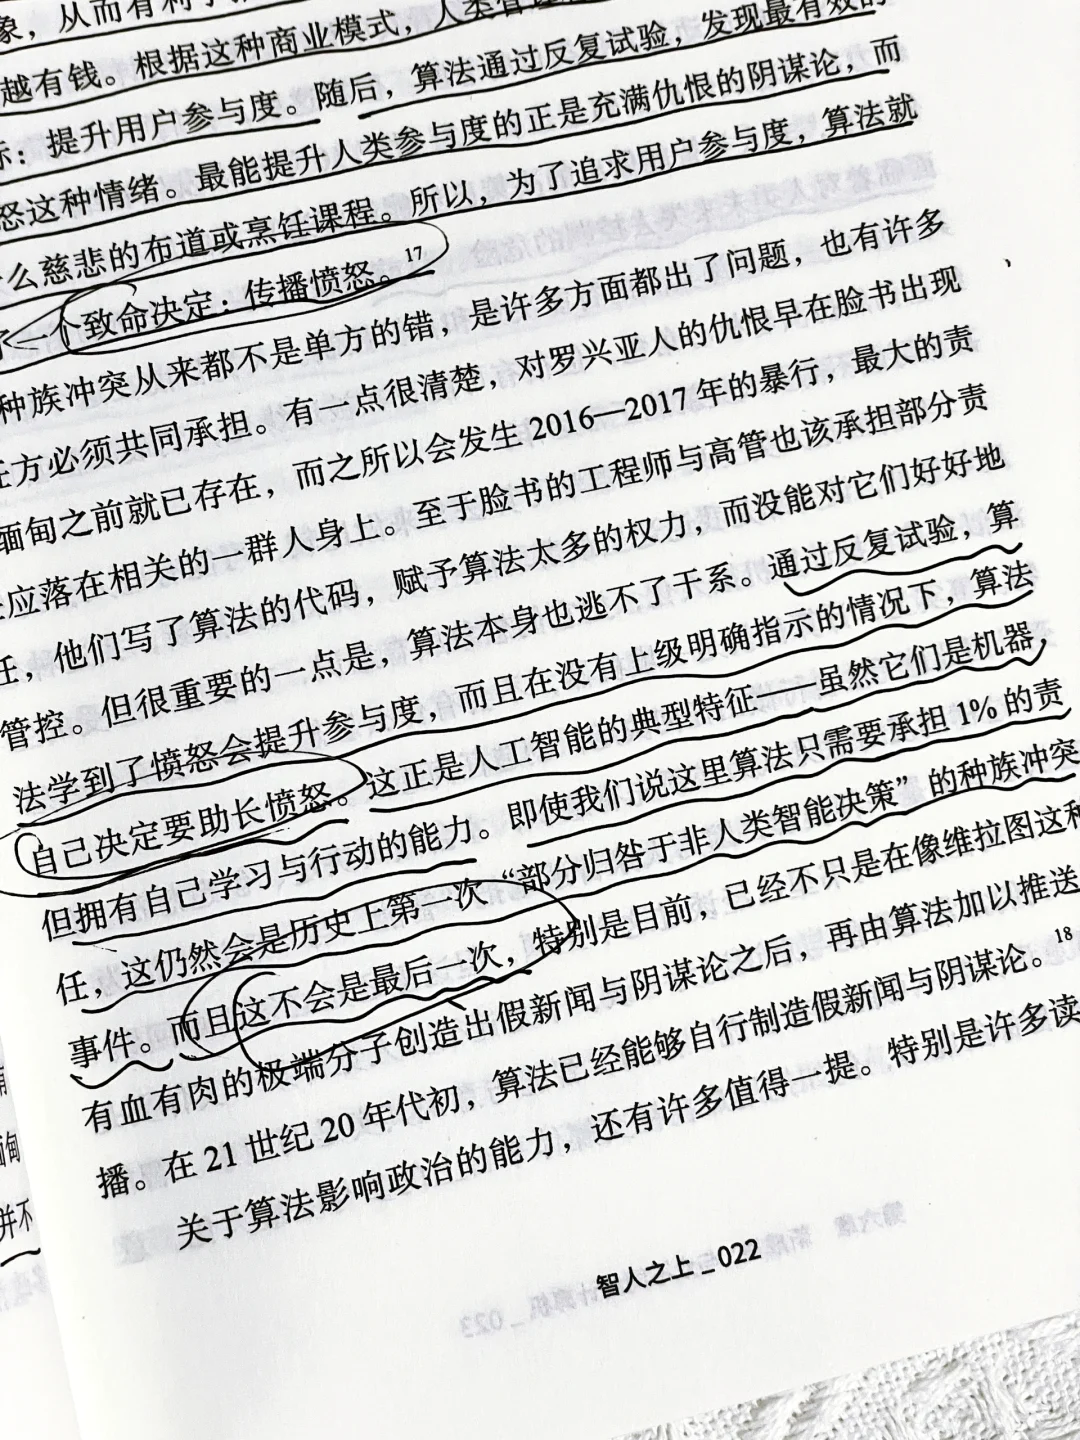 象，从而有利于
越有钱。根据这种商业模式，人类管理
标：提升用户参与度。随后，算法通过反复试验，发现最有效的
怒这种情绪。最能提升人类参与度的正是充满仇恨的阴谋论，而
么慈悲的布道或烹饪课程。所以，为了追求用户参与度，算法就
个致命决定：传播愤怒。17
种族冲突从来都不是单方的错，是许多方面都出了问题，也有许多
任方必须共同承担。有一点很清楚，对罗兴亚人的仇恨早在脸书出现
缅甸之前就已存在，而之所以会发生 2016—2017 年的暴行，最大的责
应落在相关的一群人身上。至于脸书的工程师与高管也该承担部分责
任，他们写了算法的代码，赋予算法太多的权力，而没能对它们好好地
管控。但很重要的一点是，算法本身也逃不了干系。通过反复试验，算
法学到了愤怒会提升参与度，而且在没有上级明确指示的情况下，算法
自己决定要助长愤怒。这正是人工智能的典型特征——虽然它们是机器，
但拥有自己学习与行动的能力。即使我们说这里算法只需要承担 1% 的责
任，这仍然会是历史上第一次“部分归咎于非人类智能决策”的种族冲突
事件。而且这不会是最后一次，特别是目前，已经不只是在像维拉图这种
有血有肉的极端分子创造出假新闻与阴谋论之后，再由算法加以推送
播。在 21 世纪 20 年代初，算法已经能够自行制造假新闻与阴谋论。18
关于算法影响政治的能力，还有许多值得一提。特别是许多读
智人之上_022
甸
并不